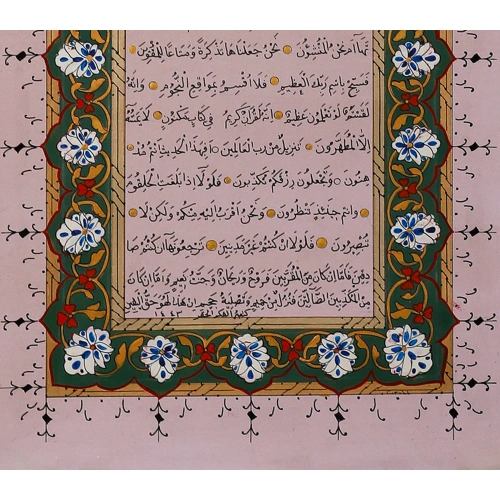 تها أم نحن المنشئون نحن جعلناها تذكرة ومتاعا للمقوين
فسبح باسم ربك العظيم فلا أقسم بمواقع النجوم وإنه
لقسم لو تعلمون عظيم إنه لقرآن كريم في كتاب مكنون لا يمسه
إلا المطهرون تنزيل من رب العالمين أفبهذا الحديث أنتم مد
هنون وتجعلون رزقكم تكذبون فلولا إذا بلغت الحلقوم
وأنتم حينئذ تنظرون ونحن أقرب إليه منكم ولكن لا
تبصرون فلولا إن كنتم غير مدينين ترجعونها إن كنتم صا
دقين فأما إن كان من المقربين فروح وريحان وجنت نعيم وأما إن كان
من المكذبين الضالين فنزل من حميم وتصلية جحيم إن هذا لهو حق اليقين
١٤٤٣